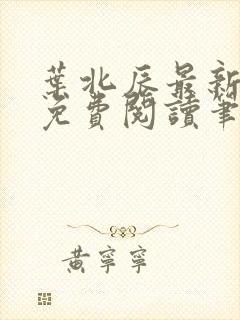 葉北辰最新
免費閱讀筆
黃寧寧